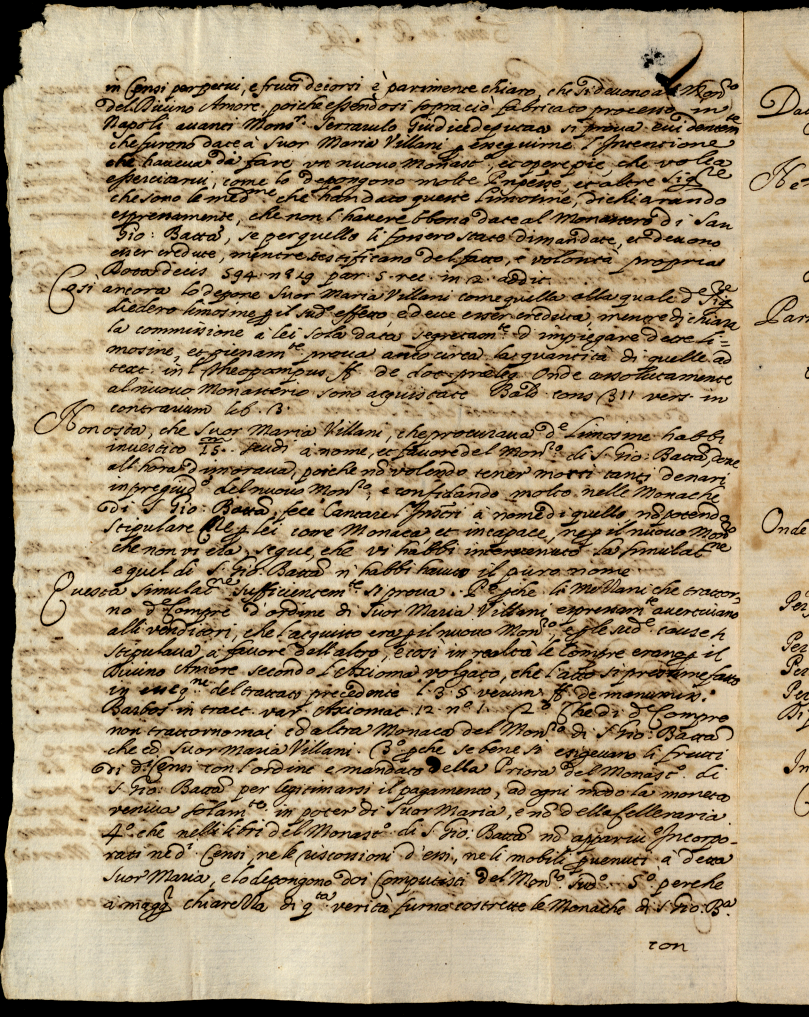 in Censi perpetui, e frutti decorsi è parimente chiaro, che si devono al Mon.ro
del Divino Amore, poiche essendosi sopra ciò fabricato processo in
Napoli avanti Mons.r Giudice deputato si prova evidentem.te
che furono date à Suor Maria Villani p eseguirne l'Intenzione
che haveva da fare un nuovo Monast.o, et opere pie, che volea
essercitarvi, come lo depongono molte Prńpesse, et altre Sig.re
che sono le med.me che han dato queste limosine, dichiarando
espressamente, che non l'haverebbono date al Monastero di San
Gio: Batta, se per quello li fossero state dimandate, et devono
esser credute, mentre testificano del fatto, e volontà propria
Rota decis. 594. n.o 19 par. 5. rec. in 12. addit.
Così ancora lo depone Suor Maria Villani come quella alla quale d.e Sig.re
diedero limosine p il sud.o effetto, e deve esser creduta mentre dichiara
la commissione à lei sola data segretam.te d'impiegare dette li=
mosine, et pienam.te prova anco circa la quantità di quelle ad
text. in l. Theopompus ff. de dot. præleg. Onde assolutamente
al nuovo Monasterio sono acquistate Bald. cons. 311 vers. in
contrarium lib. 3.
Non osta, che Suor Maria Villani, che procurava d.e Limosine habbi
investito 15. scudi à nome, et favore del Mon.ro di S. Gio: Batta, dove
all'hora dimorava, poiche nõ volendo tener morti tanti denari
in pregiud.o del nuovo Mon.ro, e confidando molto nelle Monache
di S. Gio: Batta, fece Cantare l'Instri à nome di quello nõ potend.o
stipulare p lei come Monaca et incapace, ne p il nuovo Mon.ro
che non vi era, segue, che vi habbi intervenuto la simulat.ne
e quel di S. Gio: Batta n' habbi havuto il puro nome.
Questa simulat.ne sufficientem.te si prova. P.o pche li Mezzani che trattor-
no d.e Compre d'ordine di Suor Maria Villani espressam.te avertivano
alli venditori, che l'acquisto era p il nuovo Mon.ro, e p le sud.e cause si
stipulava à favore dell'altro, e così in realtà le Compre erano p il
Divino Amore secondo l'Axioma volgato, che l'atto si presume fatto
in eseq.ne del trattato precedente l. 35 verum ff. de manumiss.
Barbos. in tract. var. Axiomat. 12. n.o 1. 2.o Che di d.e Compre
non trattorno mai ed altra Monaca del Mon.ro di S. Gio: Batta
che cõ Suor Maria Villani. 3.o pche se bene si esigevano li frutti
di d.i Censi con l'ordine e mandato della Priora del Monast.o di
S. Gio: Batta per legitimarsi il pagamento, ad ogni modo la moneta
veniva solam.te in poter di Suor Maria, e nõ della Celleraria
4.o che nelli libri del Monast.o di S. Gio: Batta nõ apparivo Incorpo-
rati ne d.i Censi, ne le riscossioni d'essi, ne li mobili pvenuti à detta
Suor Maria, e lo depongono doi Computisti del Mon.ro sud.o 5.o perche
à magg.r chiarezza di q.ta verità furno costrette le Monache di S. Gio: B.a
con
Onde